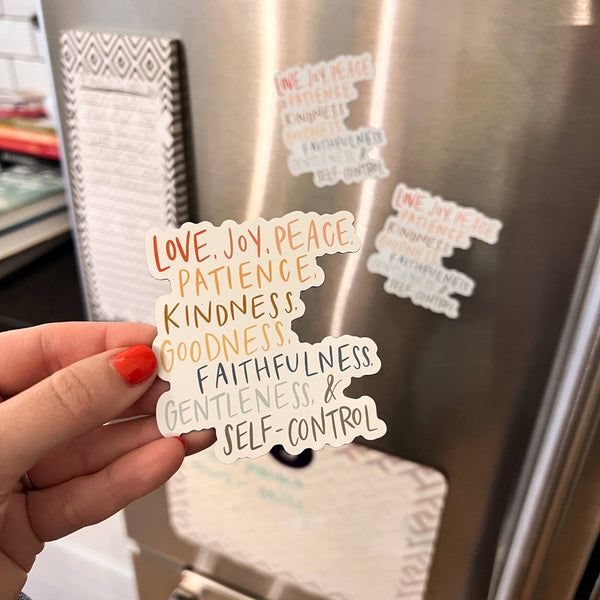 LOVE, JOY, PEACE,
PATIENCE,
KINDNESS,
GOODNESS,
FAITHFULNESS,
GENTLENESS, &
SELF-CONTROL
LOVE, JOY, PEACE,
PATIENCE,
KINDNESS,
GOODNESS,
FAITHFULNESS,
GENTLENESS, &
SELF-CONTROL
LOVE, JOY, PEACE,
PATIENCE,
KINDNESS,
GOODNESS,
FAITHFULNESS,
GENTLENESS, &
SELF-CONTROL